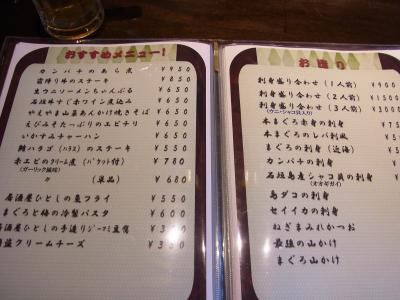 おすすめメニュー!
カンパチのあら煮 ¥950
霜降り牛のステーキ ¥850
生ウニソーメンちゃんぷる ¥650
石垣牛すじ赤ワイン煮込み ¥650
やえやま山藁あんかけ焼きそば ¥650
えびみそたっぷりのエビチリ ¥650
いかすみチャーハン ¥650
鮪ハラゴ(ハラス)のステーキ ¥550
赤エビのクリーム煮(バケット付) ¥780
(ガーリック風味)
々 (単品) ¥680
居酒屋ひとしの魚フライ ¥550
まぐろと梅の冷製パスタ ¥600
居酒屋ひとしの手造りジーマミ豆腐
クリームチーズ
お造り
刺身盛り合わせ(1人前) ¥900
刺身盛り合わせ(2人前) ¥1500
刺身盛り合わせ(3人前) ¥3000
(ウニ・シャコ貝入り)
本まぐろ赤身の刺身
本まぐろのレバ刺風
まぐろの刺身(近海)
カンパチの刺身
石垣島産シャコ貝の刺身
(オオギガイ)
島ダコの刺身
セイイカの刺身
ねぎまみれかつお
最強の山かけ
まぐろ山かけ